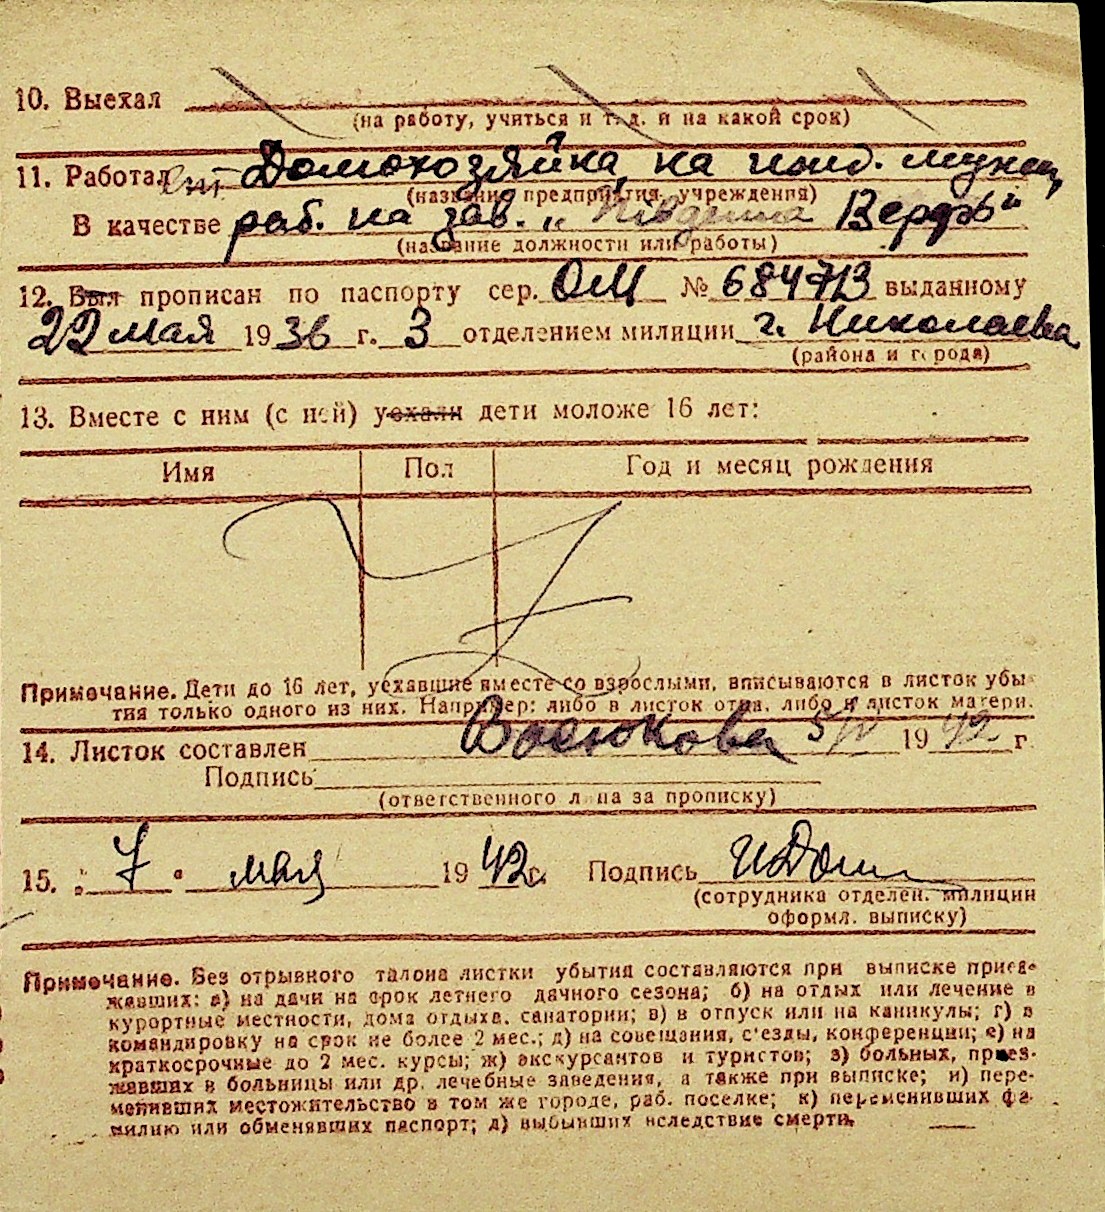 10. Выехал
(на работу, учиться и т. д. и на какой срок)
11. Работал Домохозяйка, на ижд. мужа,
(название предприятия, учреждения)
В качестве раб. на зав. „ Верфь"
(название должности или работы)
12. Был прописан по паспорту сер. ОМ № 684713 выданному
22 мая 1936 г. 3 отделением милиции г. Николаева
(района и города)
13. Вместе с ним (с ней) уехали дети моложе 16 лет:
Имя Пол Год и месяц рождения
Примечание. Дети до 16 лет, уехавшие вместе со взрослыми, вписываются в листок убы-
тия только одного из них. Например: либо в листок отца, либо в листок матери.
14. Листок составлен Васюкова 5/IV 1942 г.
Подпись
(ответственного лица за прописку)
15. „ 7 " мая 1942 г. Подпись
(сотрудника отделен. милиции
оформл. выписку)
Примечание. Без отрывного талона листки убытия составляются при выписке приез-
жавших: а) на дачи на срок летнего дачного сезона; б) на отдых или лечение в
курортные местности, дома отдыха, санатории; в) в отпуск или на каникулы; г) в
командировку на срок не более 2 мес.; д) на совещания, с'езды, конференции; е) на
краткосрочные до 2 мес. курсы; ж) экскурсантов и туристов; з) больных, приез-
жавших в больницы или др. лечебные заведения, а также при выписке; и) пере-
менивших местожительство в том же городе, раб. поселке; к) переменивших фа-
милию или обменявших паспорт; л) выбывших вследствие смерти.